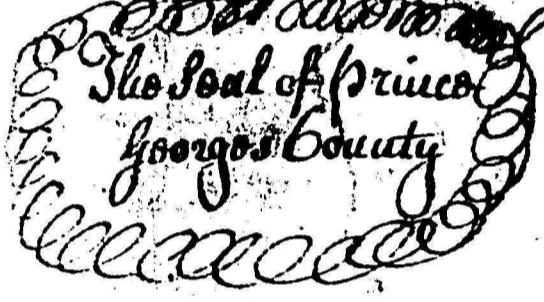 The Seal of Prince
Georges County